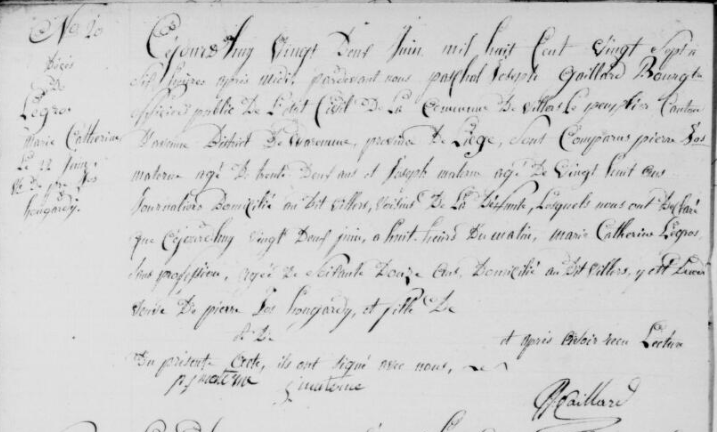 No 20
Décès
De
Legros
Marie Catherine
Le 22 Juin
Ve De pre Jos
hougardy.
Cejourd'huy Vingt Deux Juin mil huit Cent Vingt Sept à
Six heures après midi pardevant nous paschal Joseph Gaillard Bourgtre
officier public De L'état Civil De La Commune De Villers Le peuplier Canton
Davenne District De Waremme, province De Liège, Sont Comparus pierre Jos
materne agé De trente Deux ans et Joseph materne agé De Vingt huit ans
Journaliers Domicilié au Dit Villers, Voisins De La Défunte, Lesquels nous ont Déclaré
que Cejourdhuy Vingt Deux juin, a huit heures Du matin, marie Catherine Legros,
Sans profession, agée De Soixante Douze ans, Domicilié au Dit Villers, y est Décédé
Veuve De pierre Jos hougardy, et fille De
et De et après avoir reçu Lecture
Du présente Acte, ils ont signé avec nous,
pj materne J materne
PJ Gaillard